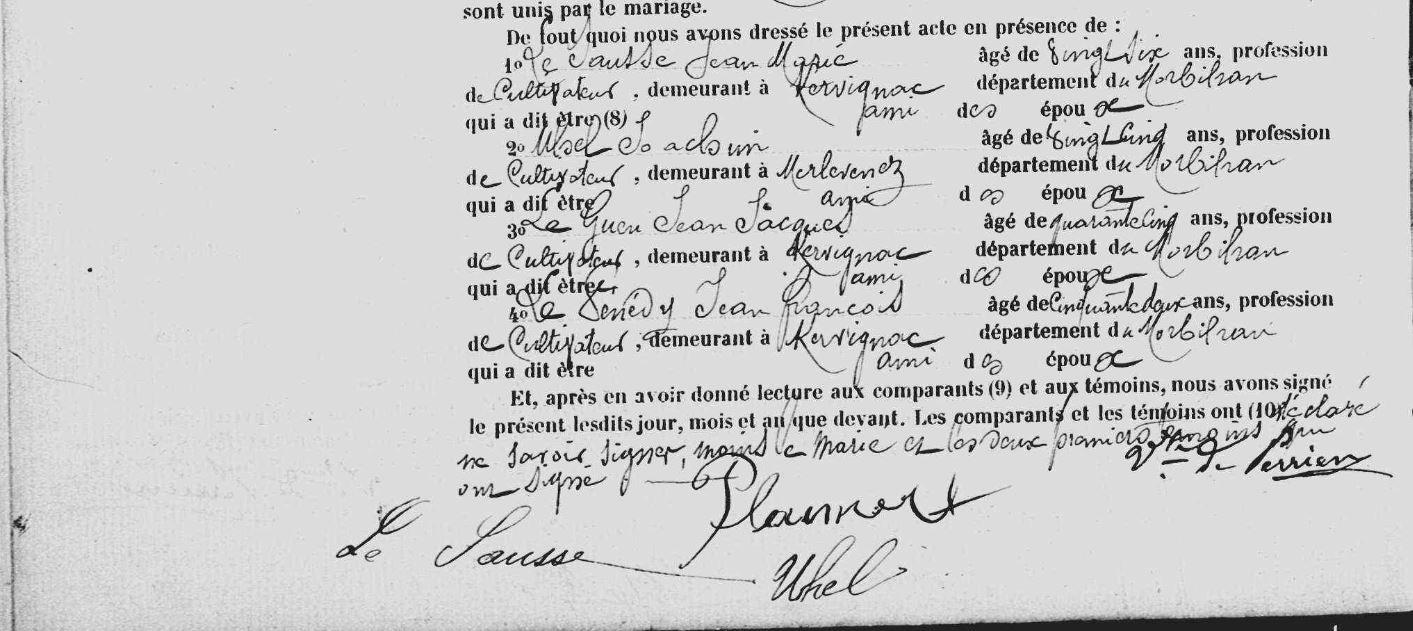 sont unis par le mariage.
De tout quoi nous avons dressé le présent acte en présence de :
1º Le Sausse Jean Marie âgé de vingt six ans, profession
de Cultivateur, demeurant à Kervignac département du Morbihan
qui a dit être (8) ami des époux
2º Uhel Joachim âgé de vingt cinq ans, profession
de Cultivateur, demeurant à Merlevenez département du Morbihan
qui a dit être ami des époux
3º Le Guen Jean Jacques âgé de quarante cinq ans, profession
de Cultivateur, demeurant à Kervignac département du Morbihan
qui a dit être ami des époux
4º Le Jean François âgé de cinquante deux ans, profession
de Cultivateur, demeurant à Kervignac département du Morbihan
qui a dit être ami des époux
Et, après en avoir donné lecture aux comparants (9) et aux témoins, nous avons signé
le présent lesdits jour, mois et an que devant. Les comparants et les témoins ont (10) déclaré
ne savoir signer, moins le Marié et les deux premiers témoins qui
ont signé
de Perrien
Le Sausse
Uhel